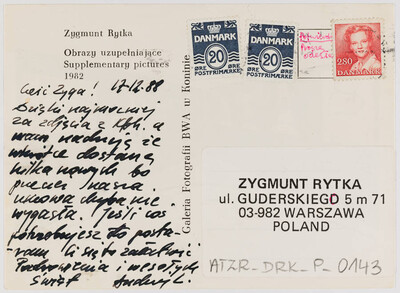 Zygmunt Rytka
Obrazy uzupełniające
Supplementary pictures
1982
17-12.88
Cześć Zyga!
Dzięki najmocniej
za zdjęcia z Kph. a
mam nadzieję że
wkrótce dostanę
kilka nowych bo
przecież nasza
umowa chyba nie
wygasła. Jeśli coś
potrzebujesz to posta-
ram Ci się to załatwić
Pozdrowienia i wesołych
Świąt Andrzej
Galeria Fotografii BWA w Koninie
DANMARK
20
ØRE ØRE
POSTFRIMÆRKE
DANMARK
20
ØRE ØRE
POSTFRIMÆRKE
2.80
DANMARK
ZYGMUNT RYTKA
ul. GUDERSKIEGO 5 m 71
03-982 WARSZAWA
POLAND
ATZR_DRK_P_0143